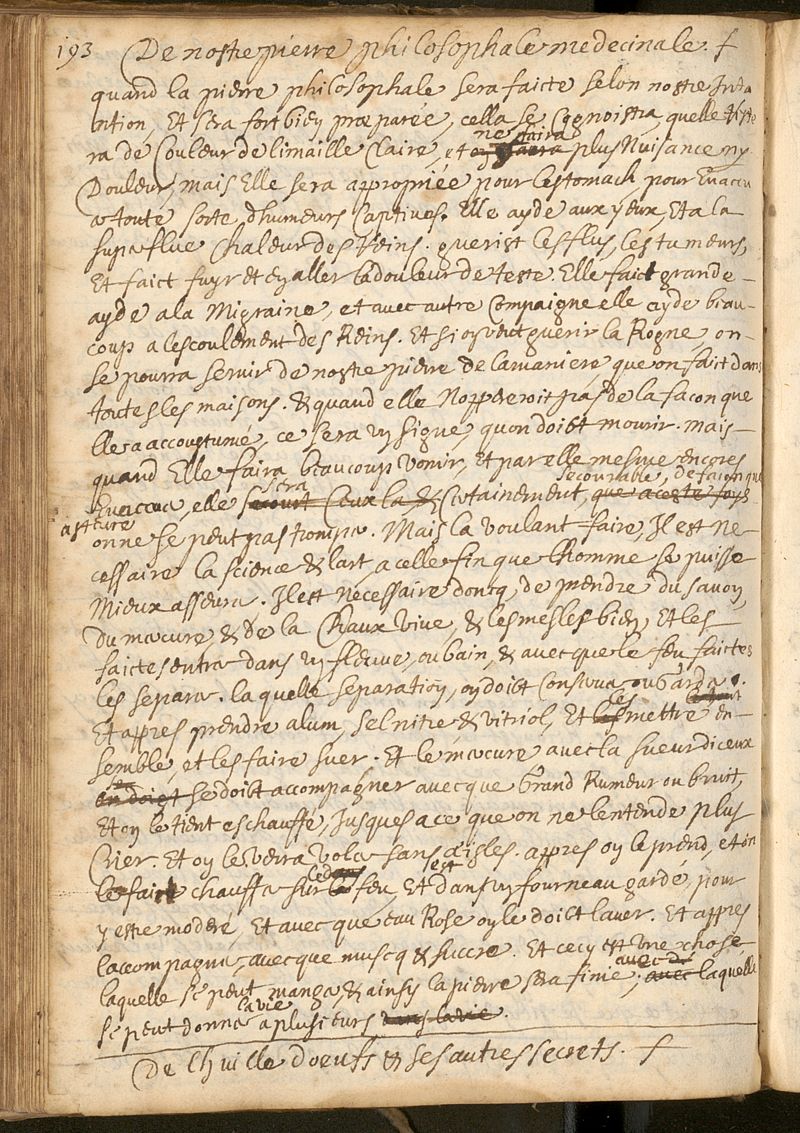 193 De nostre pierre philosophale medecinale. f
quand la pierre philosophale sera faicte selon nostre Inte
ntion, Et sera fort bien præparée, cella se Cognoistra, quelle
ne faira
ra de Couleur de limaille Claire, et plus Nuisance ny
Douleur, mais Elle sera appropriée pour lestomach, pour Evacu
a toute sorte dhumeurs Captives. Elle ayde aux yeux, Et a la
superflue Chaleur des Reins. guerist les flus, les tumeurs,
Et faict fuyr et en aller la douleur de teste. Elle faict grande
ayde a la Migraine, et avec autre Compaigne elle ayde beau-
coup a lescoulement des Reins. Et si on veut guerir la Rogne, on
se pourra servir de nostre pierre de la maniere que on fait dans
toutes les maisons. & quand elle Noppereroit pas de la facon que
Elle a accoustumé, ce sera un signe, quon doibt mourir. Mais
quand Elle faira beaucoup vomir, Et par elle mesme encores
sera secourable, de facon que
Evacuer, elle secourt Ceux la & Certainement, que a ceste foys
asteure
on ne se peut pas tromper. Mais la voulant faire, Il est Ne-
cessaire la science & lart, a celle fin que lhomme se puisse
Mieux asseurer. Il est Necessaire doncq, de prendre du savon,
Du mercure & de la Chaux vive, & les mesles bien, Et les
faictes entrer dans un fleuve, ou bain, & avecque le feu faictes
les separer. laquelle separation, on doibt Conserver ou Garder.
Et appres prendre alum, sel nitre & vitriol, Et les mettre en-
semble, et les faire suer. Et le mercure avec la sueur diceux
en doigt se doibt accompagner avecque Grand Rumeur ou bruit,
Et on le tient eschauffé, Jusques a ce que on ne lentende plus
Crier. Et on le verra voler sans aisles. appres on le prend, et on
le faict chauffer sur le feu, Et dans un fourneau gardé, pour
y estre moderé, Et avecque eau Rose on le doibt laver. Et appres
laccompagner avecque muscq & succre. Et cecy est une chose,
laquelle se peut manger, & ainsy la pierre sera finie, avec laquelle
la vie
se peut donner a plusieurs dans la vie.
De lhuille doeufs & ses autres secrets. f